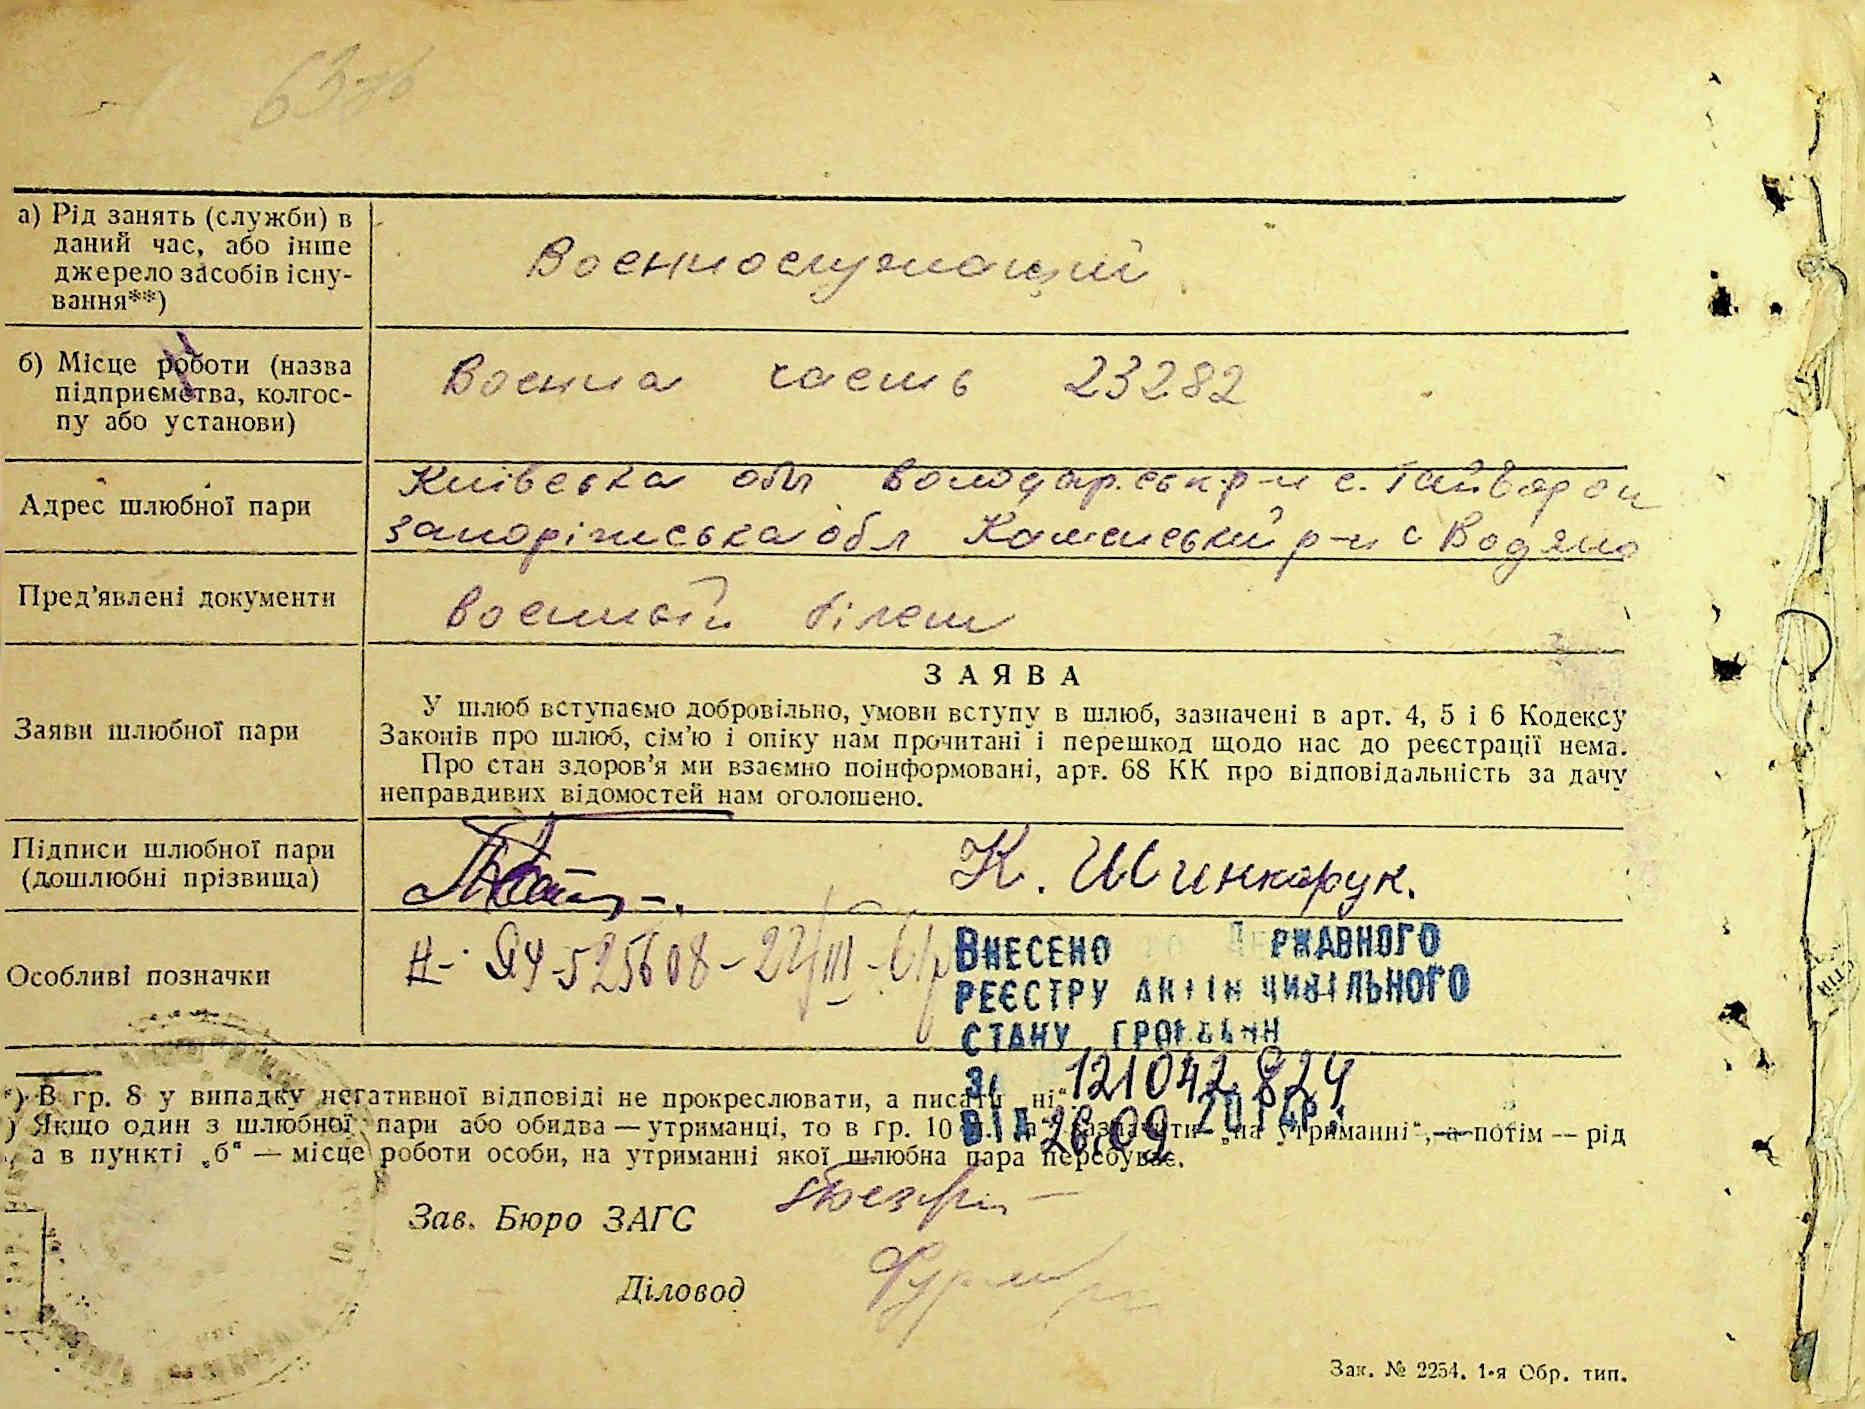 а) Рід занять (служби) в
даний час, або інше
джерело засобів існу-
вання**)
Военнослужащий
б) Місце роботи (назва
підприємства, колгос-
пу або установи)
Военна часть 23282
Адрес шлюбної пари
Київська обл Володарськ р-н с. Гайворон
Запоріжська обл Каменський р-н с Водяно
Пред'явлені документи
Военный білет
Заяви шлюбної пари
ЗАЯВА
У шлюб вступаємо добровільно, умови вступу в шлюб, зазначені в арт. 4, 5 і 6 Кодексу
Законів про шлюб, сім'ю і опіку нам прочитані і перешкод щодо нас до реєстрації нема.
Про стан здоров'я ми взаємно поінформовані, арт. 68 КК про відповідальність за дачу
неправдивих відомостей нам оголошено.
Підписи шлюбної пари
(дошлюбні прізвища)
К. Шинкарук.
Особливі позначки
ЯЧ-525608-22/III
Внесено Державного
реєстру актів цивільного
стану громадян
за 121042824
від 26.09 2014р.
*) В гр. 8 у випадку негативної відповіді не прокреслювати, а писати „ні“.
) Якщо один з шлюбної пари або обидва — утриманці, то в гр. 10 „на утриманні“, а потім — рід
, а в пункті „б“ — місце роботи особи, на утриманні якої шлюбна пара перебуває.
Зав. Бюро ЗАГС
Діловод
Зак. № 2254. 1-я Обр. тип.